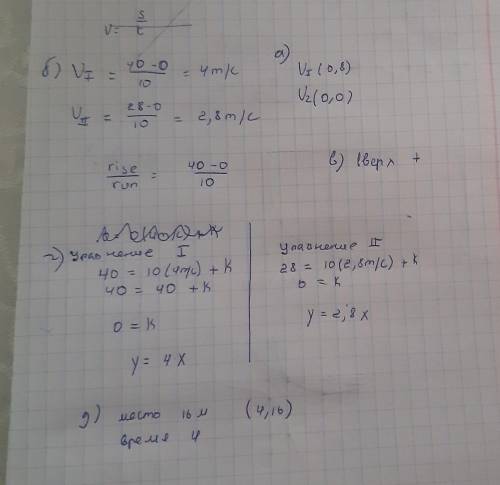 V = S/t
б) V_I = (40-0)/10 = 4 m/c
а)
V_I (0,8)
V_2 (0,0)
V_II = (28-0)/10 = 2,8 m/c
rise/run = (40-0)/10
в) вверх +
г) Уравнение I
40 = 10(4m/c) + K
40 = 40 + K
0 = K
y = 4x
Уравнение II
28 = 10(2,8m/c) + K
0 = K
y = 2,8x
д) место 16 м (4,16)
время 4